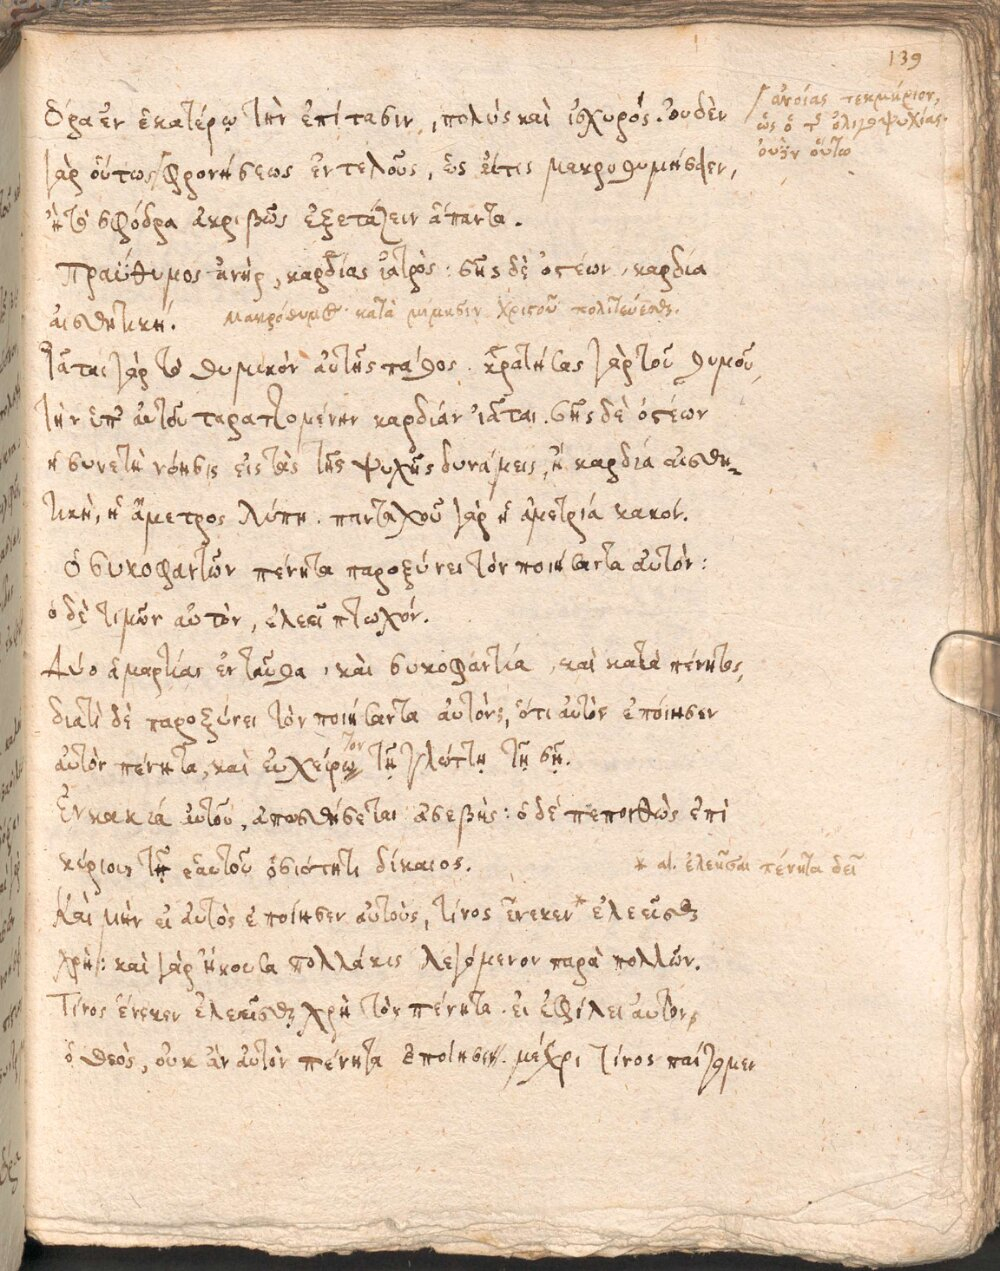 139
ὅρα ἐν ἑκατέρῳ τὴν ἐπίτασιν, πολὺς καὶ ἰσχυρός. οὐδὲν
ἀνοίας τεκμήριον,
ὡς ὁ τῆς ὀλιγοψυχίας.
οὐδὲν οὕτω
γὰρ οὕτως φρονήσεως ἐντελοῦς, ὡς εἴτις μακροθυμήσειεν,
ἢ τὸ σφόδρα ἀκριβῶς ἐξετάζειν ἅπαντα.
Πραΰθυμος ἀνὴρ, καρδίας ἰατρός: σὴς δὲ ὀστέων, καρδία
αἰσθητική. μακρόθυμος κατὰ μίμησιν Χριστοῦ πολιτεύεσθαι.
Ἰᾶται γὰρ τὸ θυμικὸν αὐτῆς πάθος. κρατήσας γὰρ τοῦ θυμοῦ,
τὴν ὑπ' αὐτοῦ ταραττομένην καρδίαν ἰᾶται. σὴς δὲ ὀστέων
ἡ συνετὴ νόησις εἰς τὰς τῆς ψυχῆς δυνάμεις, ἡ καρδία αἰσθη-
τικὴ, ἡ ἄμετρος λύπη. πανταχοῦ γὰρ ἡ ἀμετρία κακόν.
Ὁ συκοφαντῶν πένητα παροξύνει τὸν ποιήσαντα αὐτόν:
ὁ δὲ τιμῶν αὐτὸν, ἐλεεῖ πτωχόν.
Δύο ἁμαρτίας ἐνταῦθα, καὶ συκοφαντία, καὶ κατὰ πένητος,
διατὶ δὲ παροξύνει τὸν ποιήσαντα αὐτούς, ὅτι αὐτὸς ἐποίησεν
αὐτὸν πένητα, καὶ εὐχείρωτον τῇ γλώττῃ τῇ σῇ.
Ἐν κακίᾳ αὐτοῦ, ἀπωσθήσεται ἀσεβής: ὁ δὲ πεποιθὼς ἐπὶ
κύριον τῇ ἑαυτοῦ ὁσιότητι δίκαιος.
* αἱ. ἐλεῆσαι πένητα δεῖ
Καὶ μὴν εἰ αὐτὸς ἐποίησεν αὐτοὺς, τίνος ἕνεκεν* ἐλεεῖσθαι
χρή: καὶ γὰρ ἤκουσα πολλάκις λεγόμενον παρὰ πολλῶν.
Τίνος ἕνεκεν ἐλεεῖσθαι χρὴ τὸν πένητα. εἰ ἐφίλει αὐτὸν,
ὁ θεὸς, οὐκ ἂν αὐτὸν πένητα ἐποίησεν. μέχρι τίνος παίζομεν